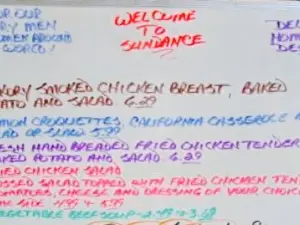 OR OUR
RY MEN
OMEN AROUND
WORLD!
WELCOME
TO
SUNDANCE
DE
HOM
DES
KORY SMOKED CHICKEN BREAST, BAKED
TATO AND SALAD 6.29
MON CROQUETTES, CALIFORNIA CASSEROLE A
AD OR SLAW 5.99
ESH HAND BREADED FRIED CHICKEN TENDER
AKED POTATO AND SALAD 6.29
IED CHICKEN SALAD
OSSED SALAD TOPPED WITH FRIED CHICKEN TEN
OMATOES, CHEESE AND DRESSING OF YOUR CHOIC
SIDE 4.99 + 5.99
EGETABLE BEEF SOUP - 2.49 + 3.69